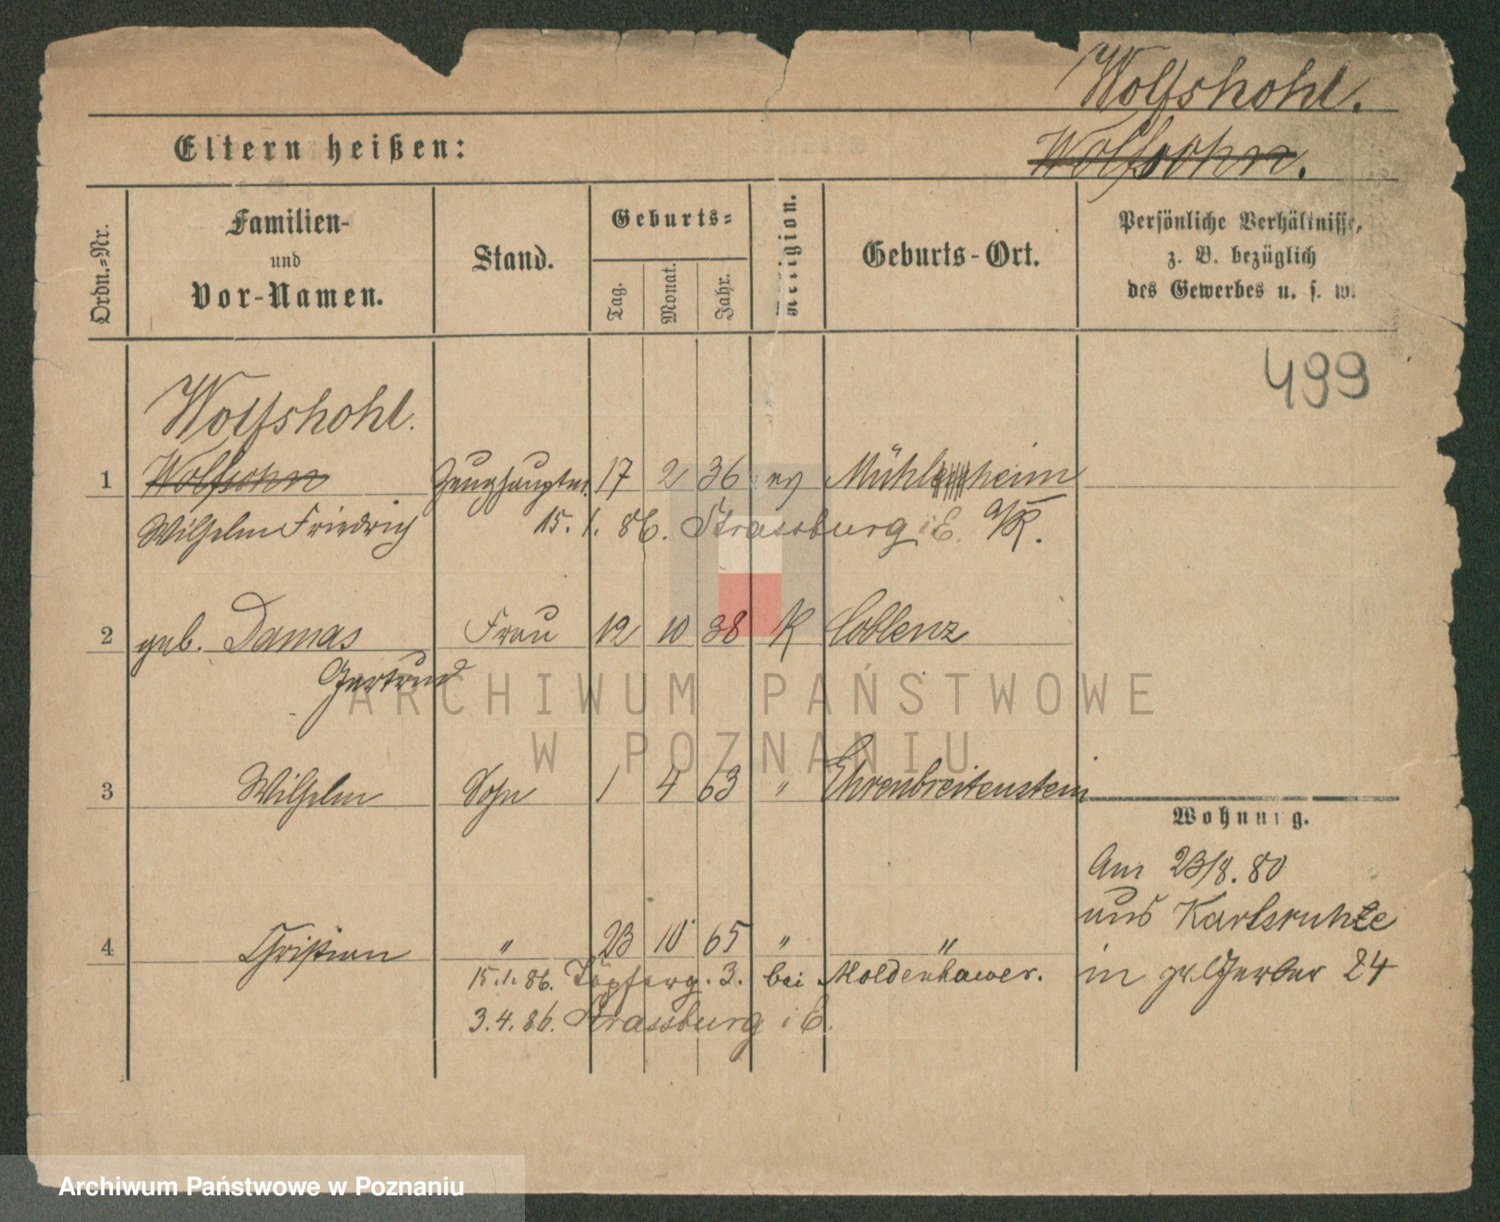 Wolfshohl.
Eltern heißen: Wolfsohn.
Ordn.=Nr. Familien- und Vor-Namen. Stand. Geburts= Tag. Monat. Jahr. Religion. Geburts-Ort. Persönliche Verhältnisse, z. B. bezüglich des Gewerbes u. s. w.
499
Wolfshohl.
1 Wolfsohn Zeughauptm. 17 2 36 ev Mühlheim
Wilhelm Friedrich 15. 1. 86. Strassburg i E. a/R.
2 geb. Damas Frau 12 10 38 K Coblenz
Gertrud
ARCHIWUM PAŃSTWOWE
W POZNANIU
3 Wilhelm Sohn 1 4 63 " Ehrenbreitenstein
Wohnung.
Am 23/8. 80
aus Karlsruhe
4 Christian " 23 10 65 " "
15.1.86. Töpferg. 3. bei Moldenhawer. in gr. Gerber 24
3.4.86. Strassburg i E.
Archiwum Państwowe w Poznaniu